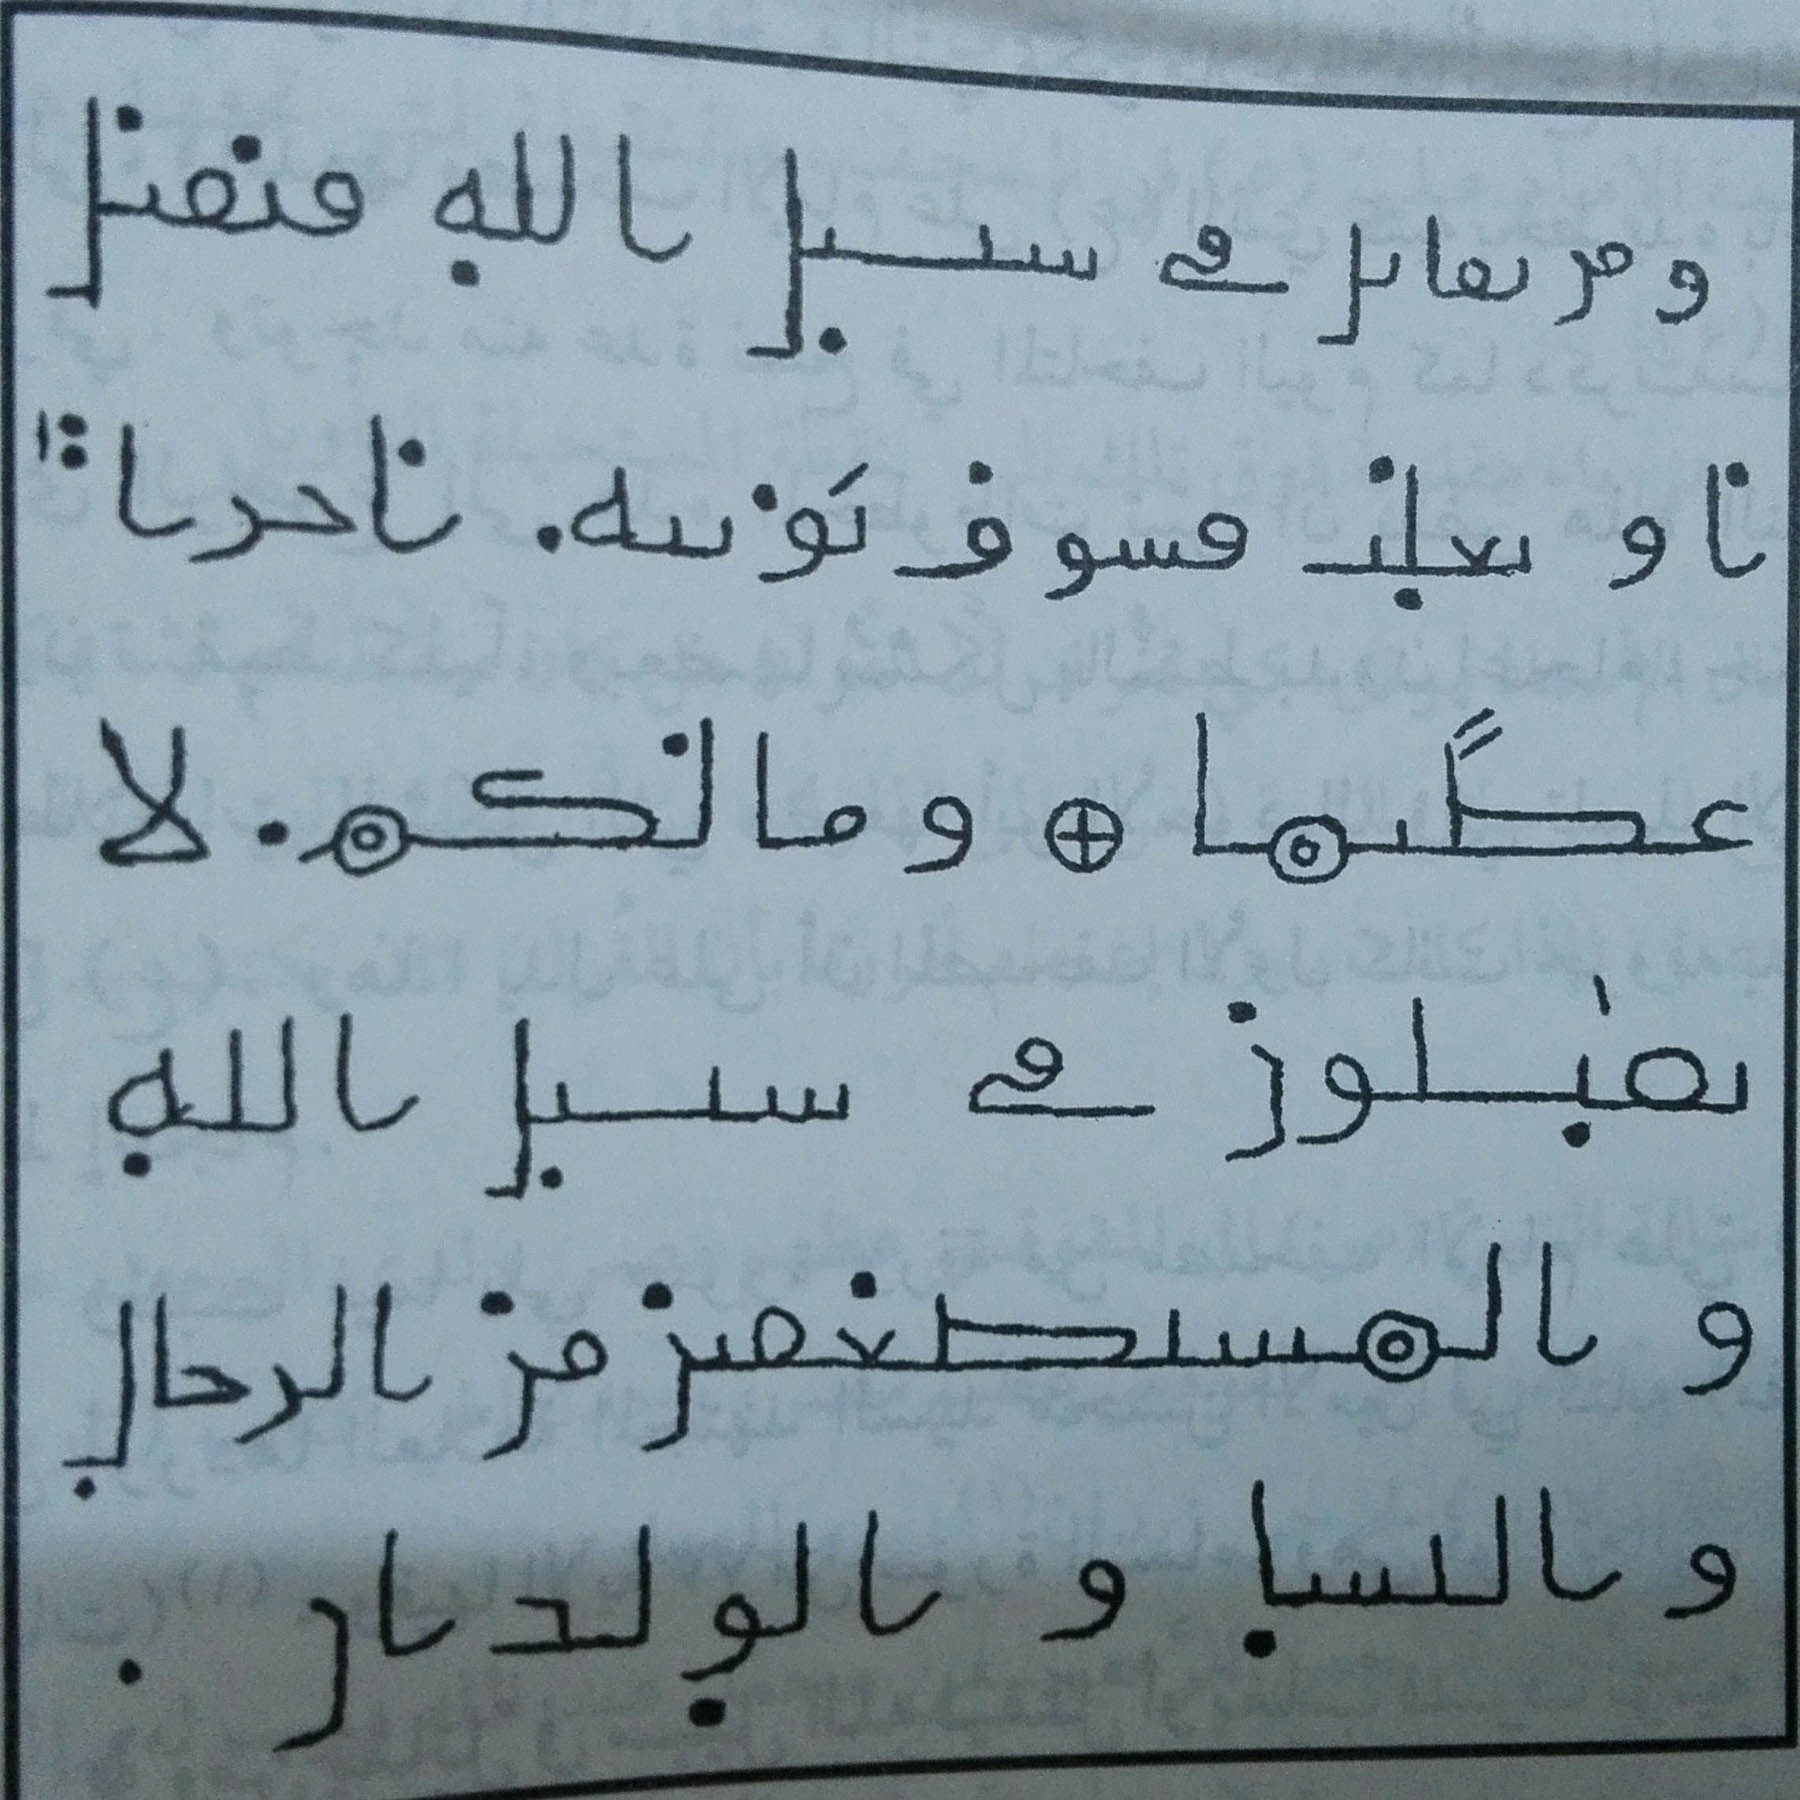 ومن يقاتل في سبيل الله فيقتل
او يغلب فسوف نؤتيه اجرا
عظيما ⊕ وما لكم لا
تقتلون في سبيل الله
و المستضعفين من الرجال
و النسا و الولدان